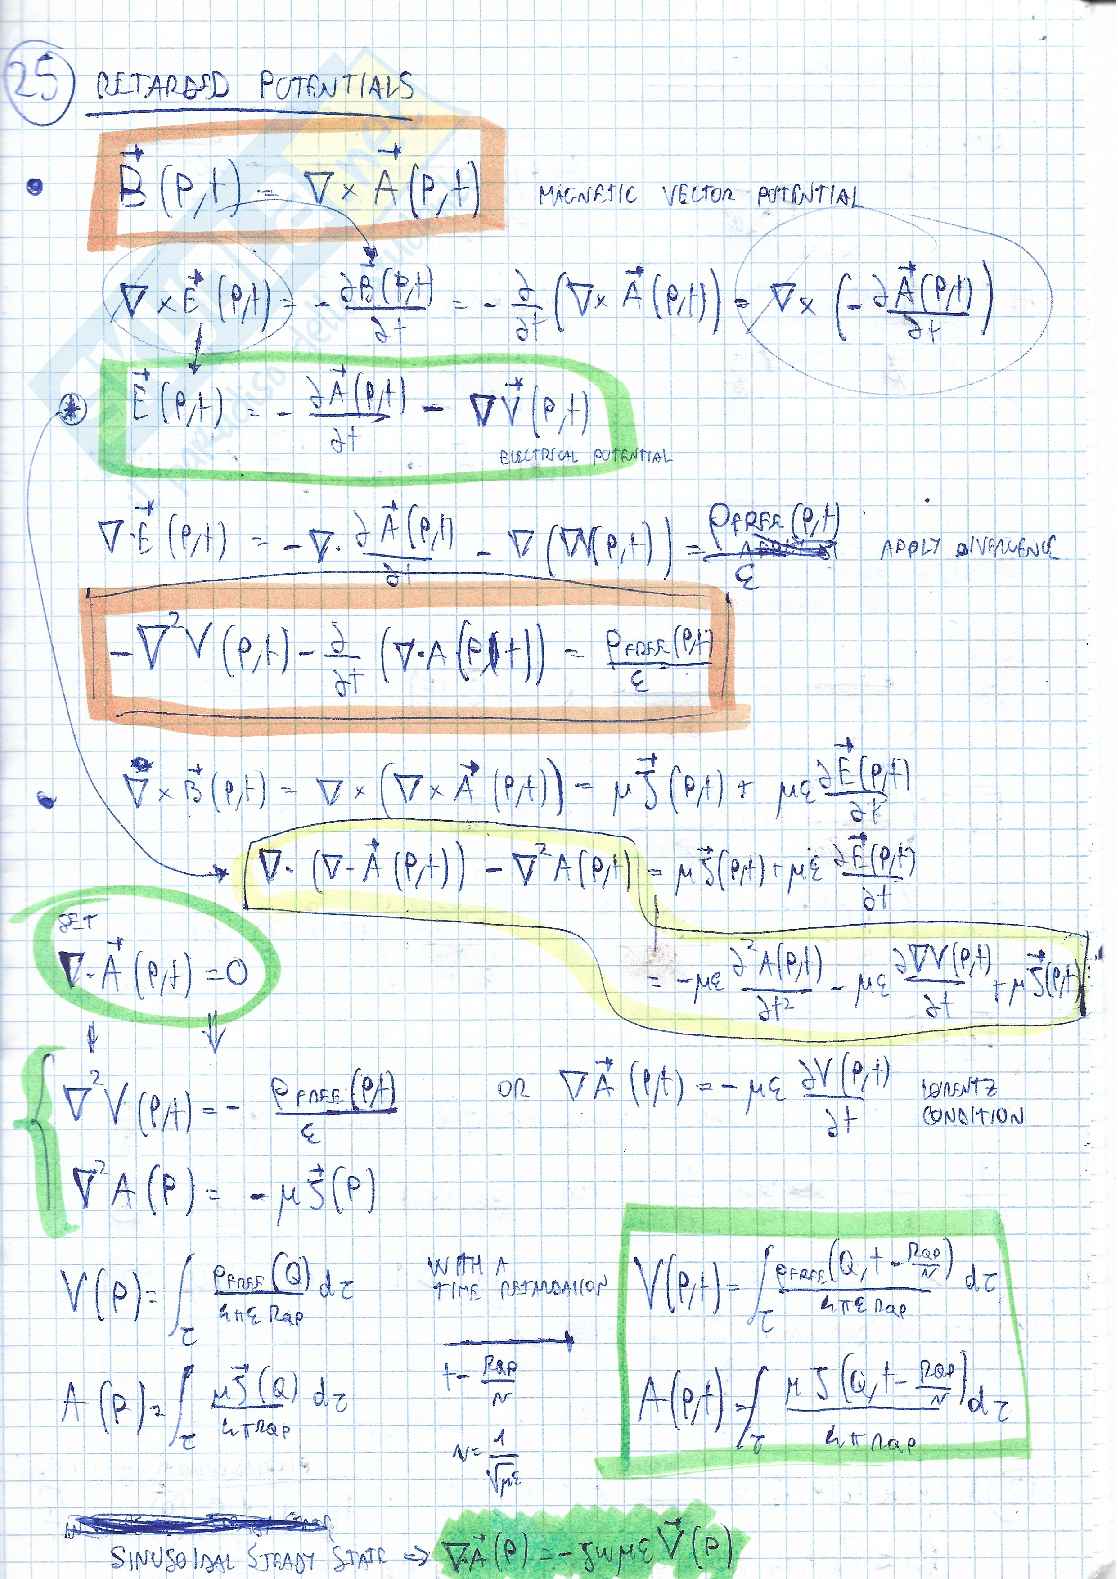 25 RETARDED POTENTIALS
• B⃗(P,t) = ∇ × A⃗(P,t) MAGNETIC VECTOR POTENTIAL
∇ × E⃗(P,t) = - ∂B⃗(P,t)/∂t = - ∂/∂t (∇ × A⃗(P,t)) = ∇ × (- ∂A⃗(P,t)/∂t)
* E⃗(P,t) = - ∂A⃗(P,t)/∂t - ∇V⃗(P,t)
ELECTRICAL POTENTIAL
∇·E⃗(P,t) = -∇· ∂A⃗(P,t)/∂t - ∇(∇V(P,t)) = ρFREE(P,t)/ε APPLY DIVERGENCE
-∇²V(P,t) - ∂/∂t (∇·A(P,t)) = ρFREE(P,t)/ε
• ∇ × B⃗(P,t) = ∇ × (∇ × A⃗(P,t)) = μJ⃗(P,t) + με ∂E⃗(P,t)/∂t
∇·(∇·A⃗(P,t)) - ∇²A(P,t) = μJ⃗(P,t) + με ∂E⃗(P,t)/∂t
SET
∇·A⃗(P,t) = 0
= -με ∂²A(P,t)/∂t² - με ∂∇V(P,t)/∂t + μJ⃗(P,t)
∇²V(P,t) = - ρFREE(P,t)/ε OR ∇A⃗(P,t) = - με ∂V(P,t)/∂t LORENTZ CONDITION
∇²A(P) = - μJ⃗(P)
V(P) = ∫τ ρFREE(Q)/4πε RQP dτ WITH A TIME RETARDATION V(P,t) = ∫τ ρFREE(Q, t - RQP/v)/4πε RQP dτ
A(P) = ∫τ μJ⃗(Q)/4π RQP dτ t - RQP/v A(P,t) = ∫τ μJ(Q, t - RQP/v)/4π RQP dτ
v = 1/√με
SINUSOIDAL STEADY STATE ⇒ ∇·A⃗(P) = -jωμε V⃗(P)